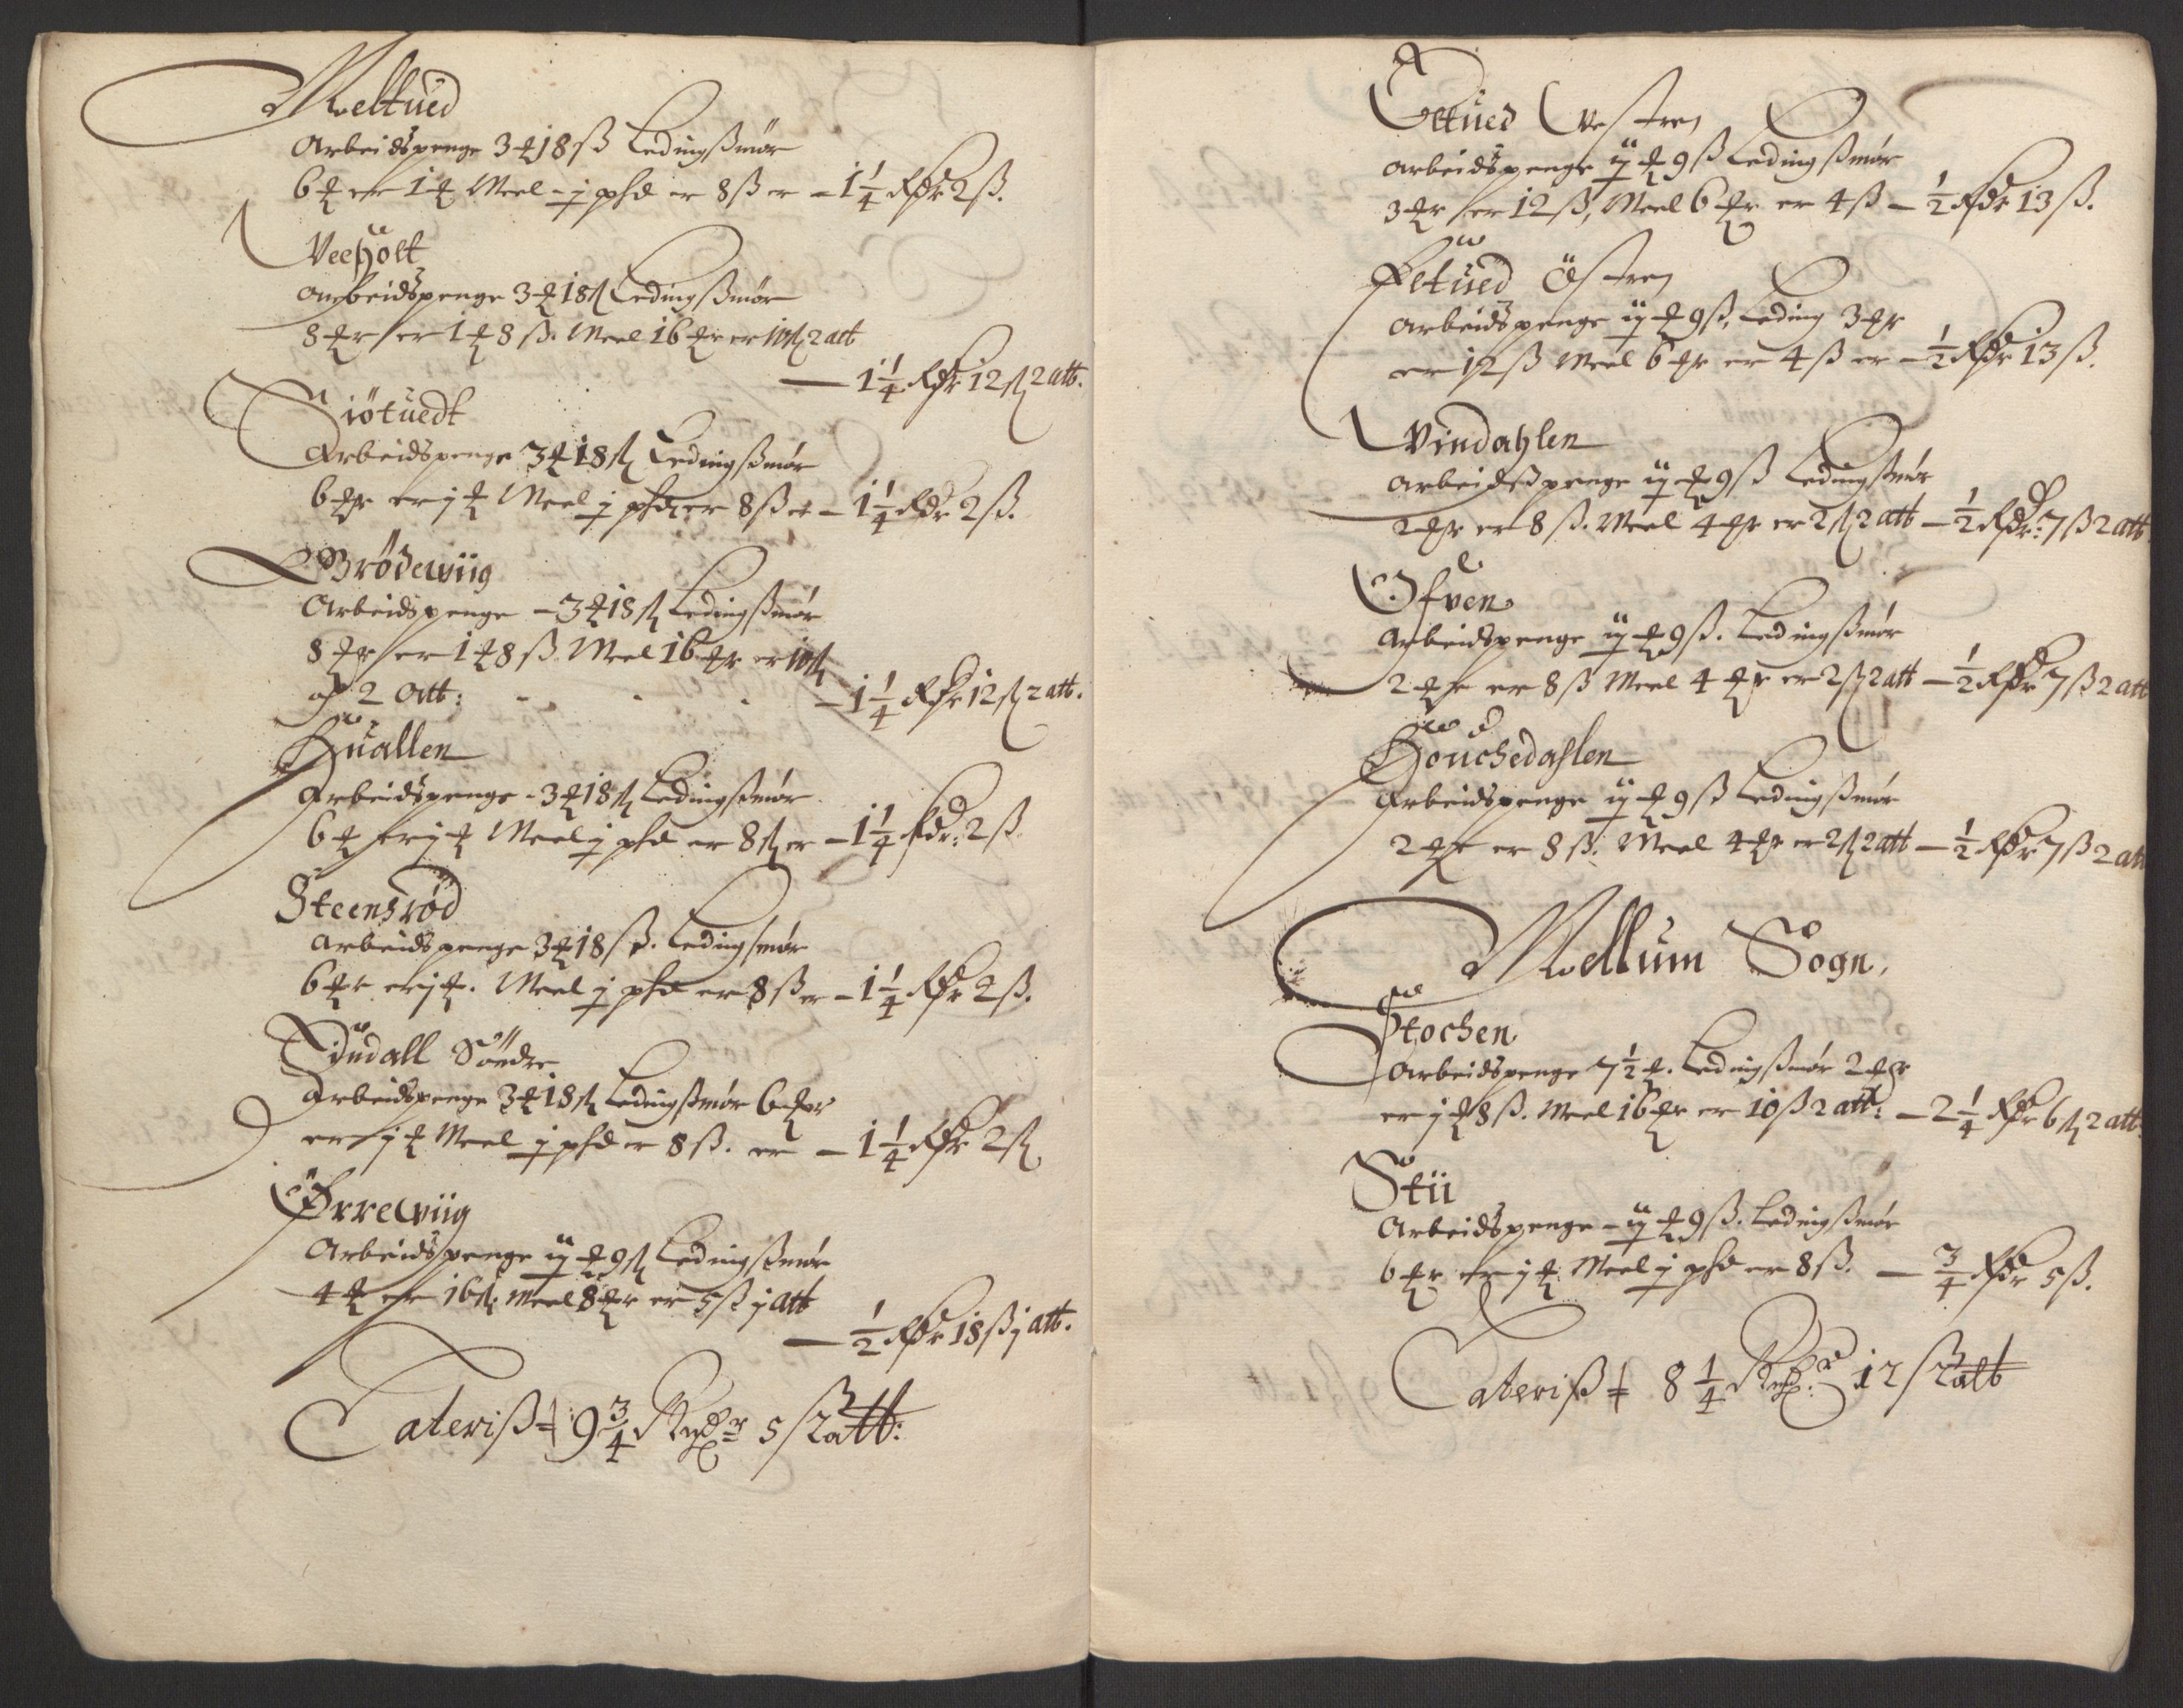 Meltued
Arbeidspenge 3 ℔ 18 ß Ledingßmør
6 ℔ er 1 ℔ Meel - j phd er 8 ß er - 1 1/4 Rdr 2 ß.
Veeholt
Arbeidspenge 3 ℔ 18 ß Ledingßmør
8 ℔r er 1 ℔ 8 ß. Meel 16 ℔r er 10 ß 2 att
— 1 1/4 Rdr 12 ß 2 att.
Siötuedt
Arbeidspenge 3 ℔ 18 ß Ledingßmør
6 ℔r er j ℔ Meel j phd er 8 ß er - 1 1/4 Rdr 2 ß.
Brödewiig
Arbeidspenge - 3 ℔ 18 ß Ledingßmør
8 ℔r er 1 ℔ 8 ß Meel 16 ℔r er 10 ß
oc 2 Att: - - - - 1 1/4 Rdr 12 ß 2 att.
Huallen
Arbeidspenge - 3 ℔ 18 ß Ledingßmør
6 ℔ er j ℔ Meel j phd er 8 ß er - 1 1/4 Rdr: 2 ß
Steensröd
Arbeidspenge 3 ℔ 18 ß. Ledingsmør
6 ℔r er j ℔. Meel j phd er 8 ß er - 1 1/4 Rdr 2 ß.
Söndre
Arbeidspenge 3 ℔ 18 ß Ledingßmør 6 ℔r
er j ℔ Meel j phd er 8 ß. er - 1 1/4 Rdr 2 ß
Ørrewiig
Arbeidspenge ij ℔ 9 ß Ledingßmør
4 ℔ er 16 ß. Meel 8 ℔r er 5 ß j att
— 1/2 Rdr 18 ß j att.
Lateriß 9 3/4 Rixdr 5 ß 2 att:
Vestre
Arbeidspenge ij ℔ 9 ß Ledingßmør
3 ℔r er 12 ß, Meel 6 ℔r er 4 ß - 1/2 Rdr 13 ß.
Östre
Arbeidspenge ij ℔ 9 ß, Leding 3 ℔r
er 12 ß Meel 6 ℔r er 4 ß er - 1/2 Rdr 13 ß.
Vindahlen
Arbeidspenge ij ℔ 9 ß Ledingßmør
2 ℔r er 8 ß. Meel 4 ℔r er 2 ß 2 att - 1/2 Rdr: 7 ß 2 att
Ofven
Arbeidspenge ij ℔ 9 ß. Ledingßmør
2 ℔r er 8 ß Meel 4 ℔r er 2 ß 2 att - 1/2 Rdr 7 ß 2 att
Houchedahlen
Arbeidspenge ij ℔ 9 ß Ledingßmør
2 ℔r er 8 ß. Meel 4 ℔r er 2 ß 2 att - 1/2 Rdr 7 ß 2 att
Mellum Sogn.
Stochen
Arbeidspenge 7 1/2 ℔. Ledingßmør 2 ℔r
er j ℔ 8 ß. Meel 16 ℔r er 10 ß 2 att: - 2 1/4 Rdr 6 ß 2 att:
Stii
Arbeidspenge - ij ℔ 9 ß. Ledingßmør
6 ℔r er j ℔. Meel j phd er 8 ß. - 3/4 Rdr 5 ß.
Lateriß 8 1/4 Rixdr: 12 ß 2 att